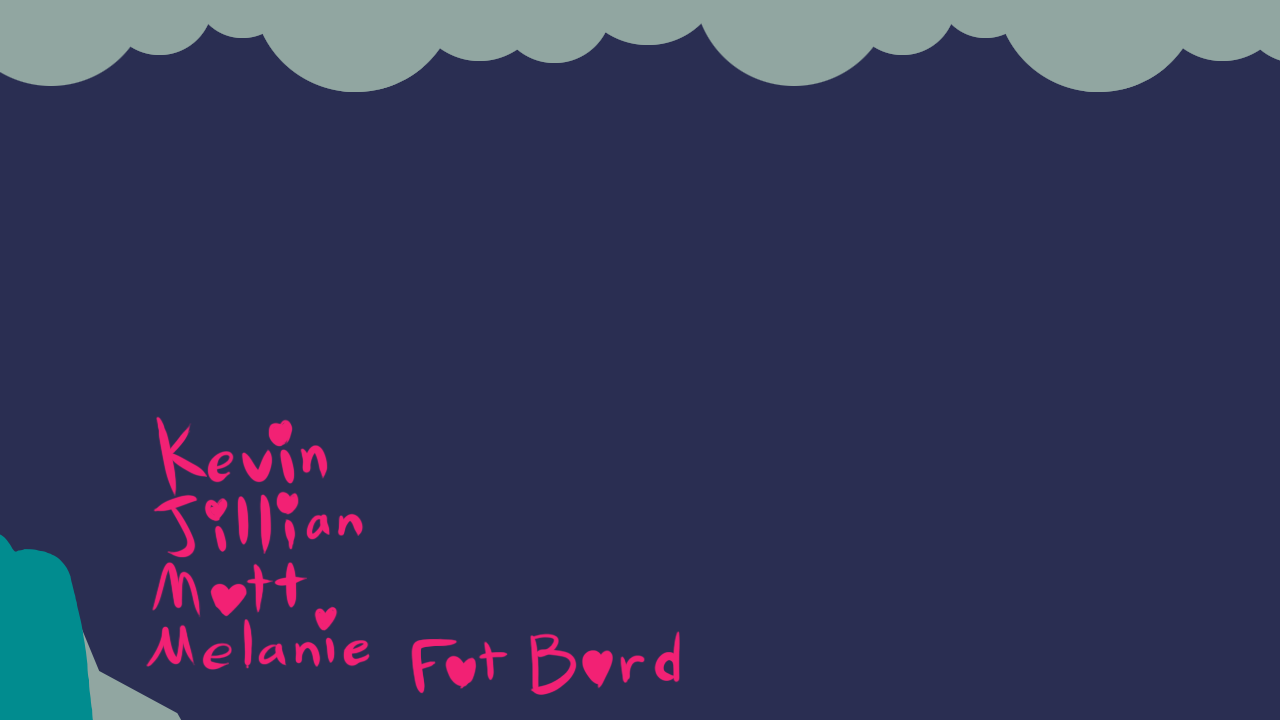 Kevin
Jillian
Matt
Melanie
Fat Bard